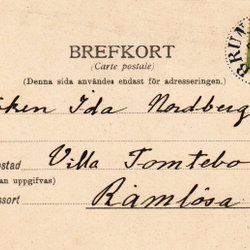 BREFKORT
(Carte postale)
(Denna sida användes endast för adresseringen.)
öken Ida Nordberg
ostad Villa Tomtebo
an uppgifvas)
ssort Ramlösa
BRUN